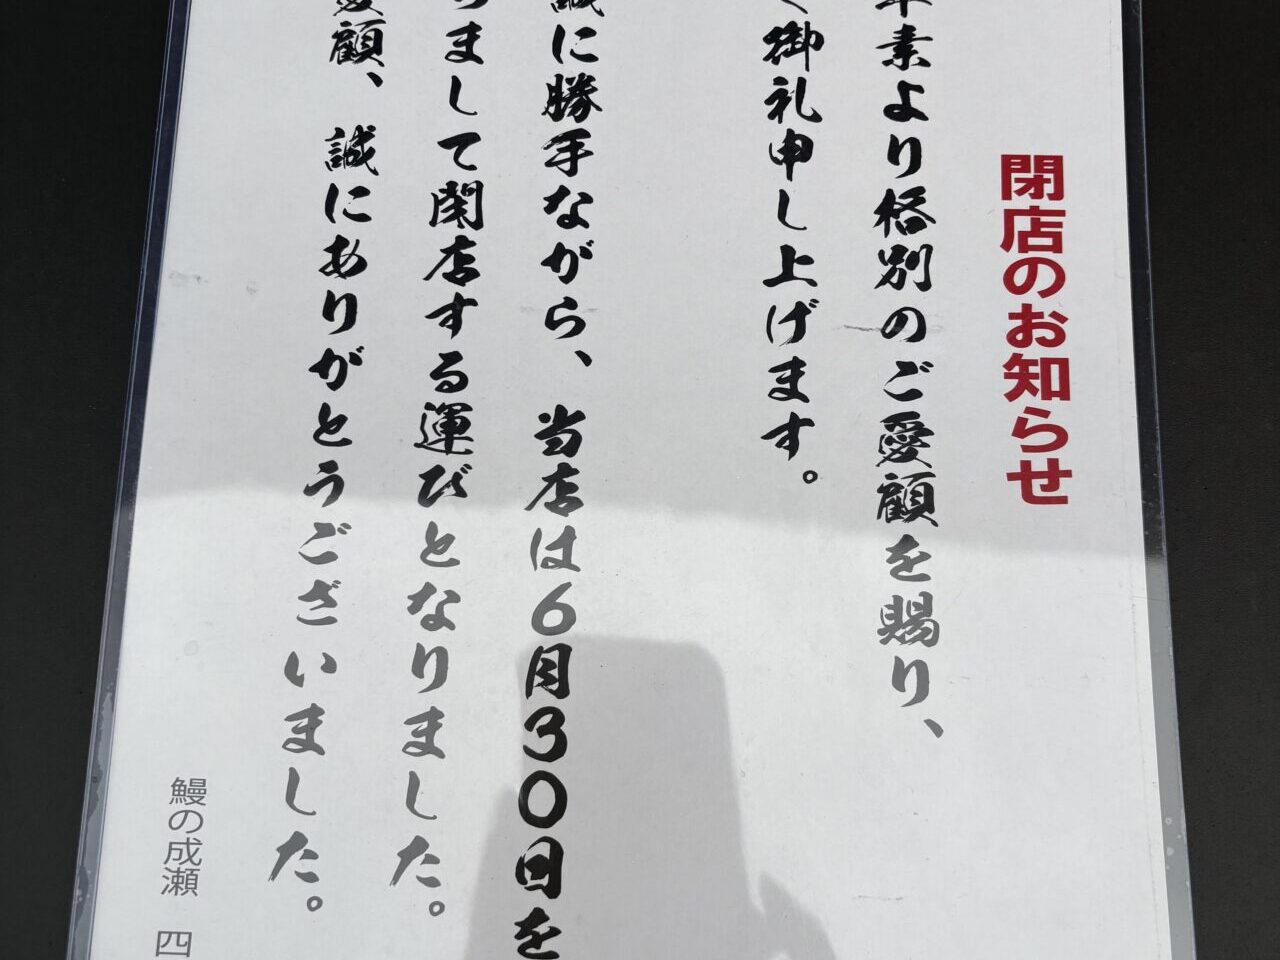 閉店のお知らせ
素より格別のご愛顧を賜り、
御礼申し上げます。
誠に勝手ながら、当店は6月30日を
りまして閉店する運びとなりました。
愛顧、誠にありがとうございました。
鰻の成瀬 四